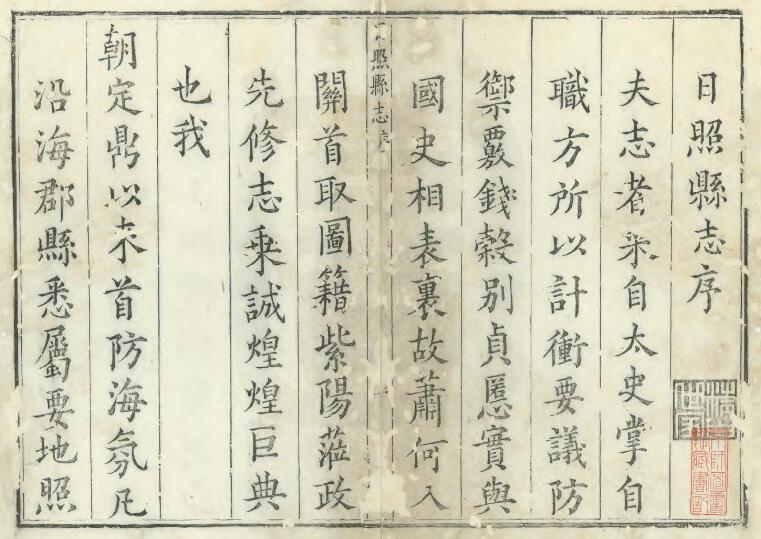 日照縣志序
夫志者采自太史掌自
職方所以計衝要議防
禦覈錢穀別貞慝實與
國史相表裏故蕭何入
照縣志序
一
關首取圖籍紫陽蒞政
先修志乗誠煌煌巨典
也我
朝定鼎以來首防海氛凡
沿海郡縣悉屬要地照